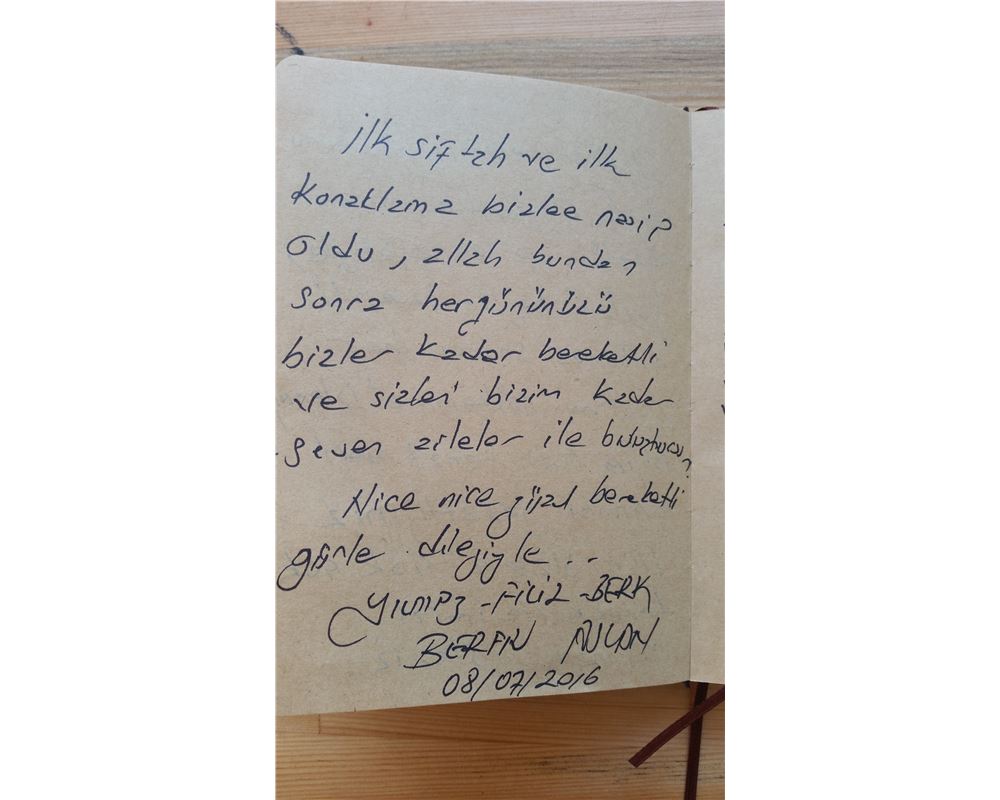 ilk siftah ve ilk
Konaklama bizlee nasip
oldu, allah bundan
sonra hergününüzü
bizler kadar bereketli
ve sizleri bizim kadar
seven aileler ile buluştursun
Nice nice güzel bereketli
günle dileğiyle...
YILMAZ - FİLİZ - BERK
BERFİN
08/07/2016